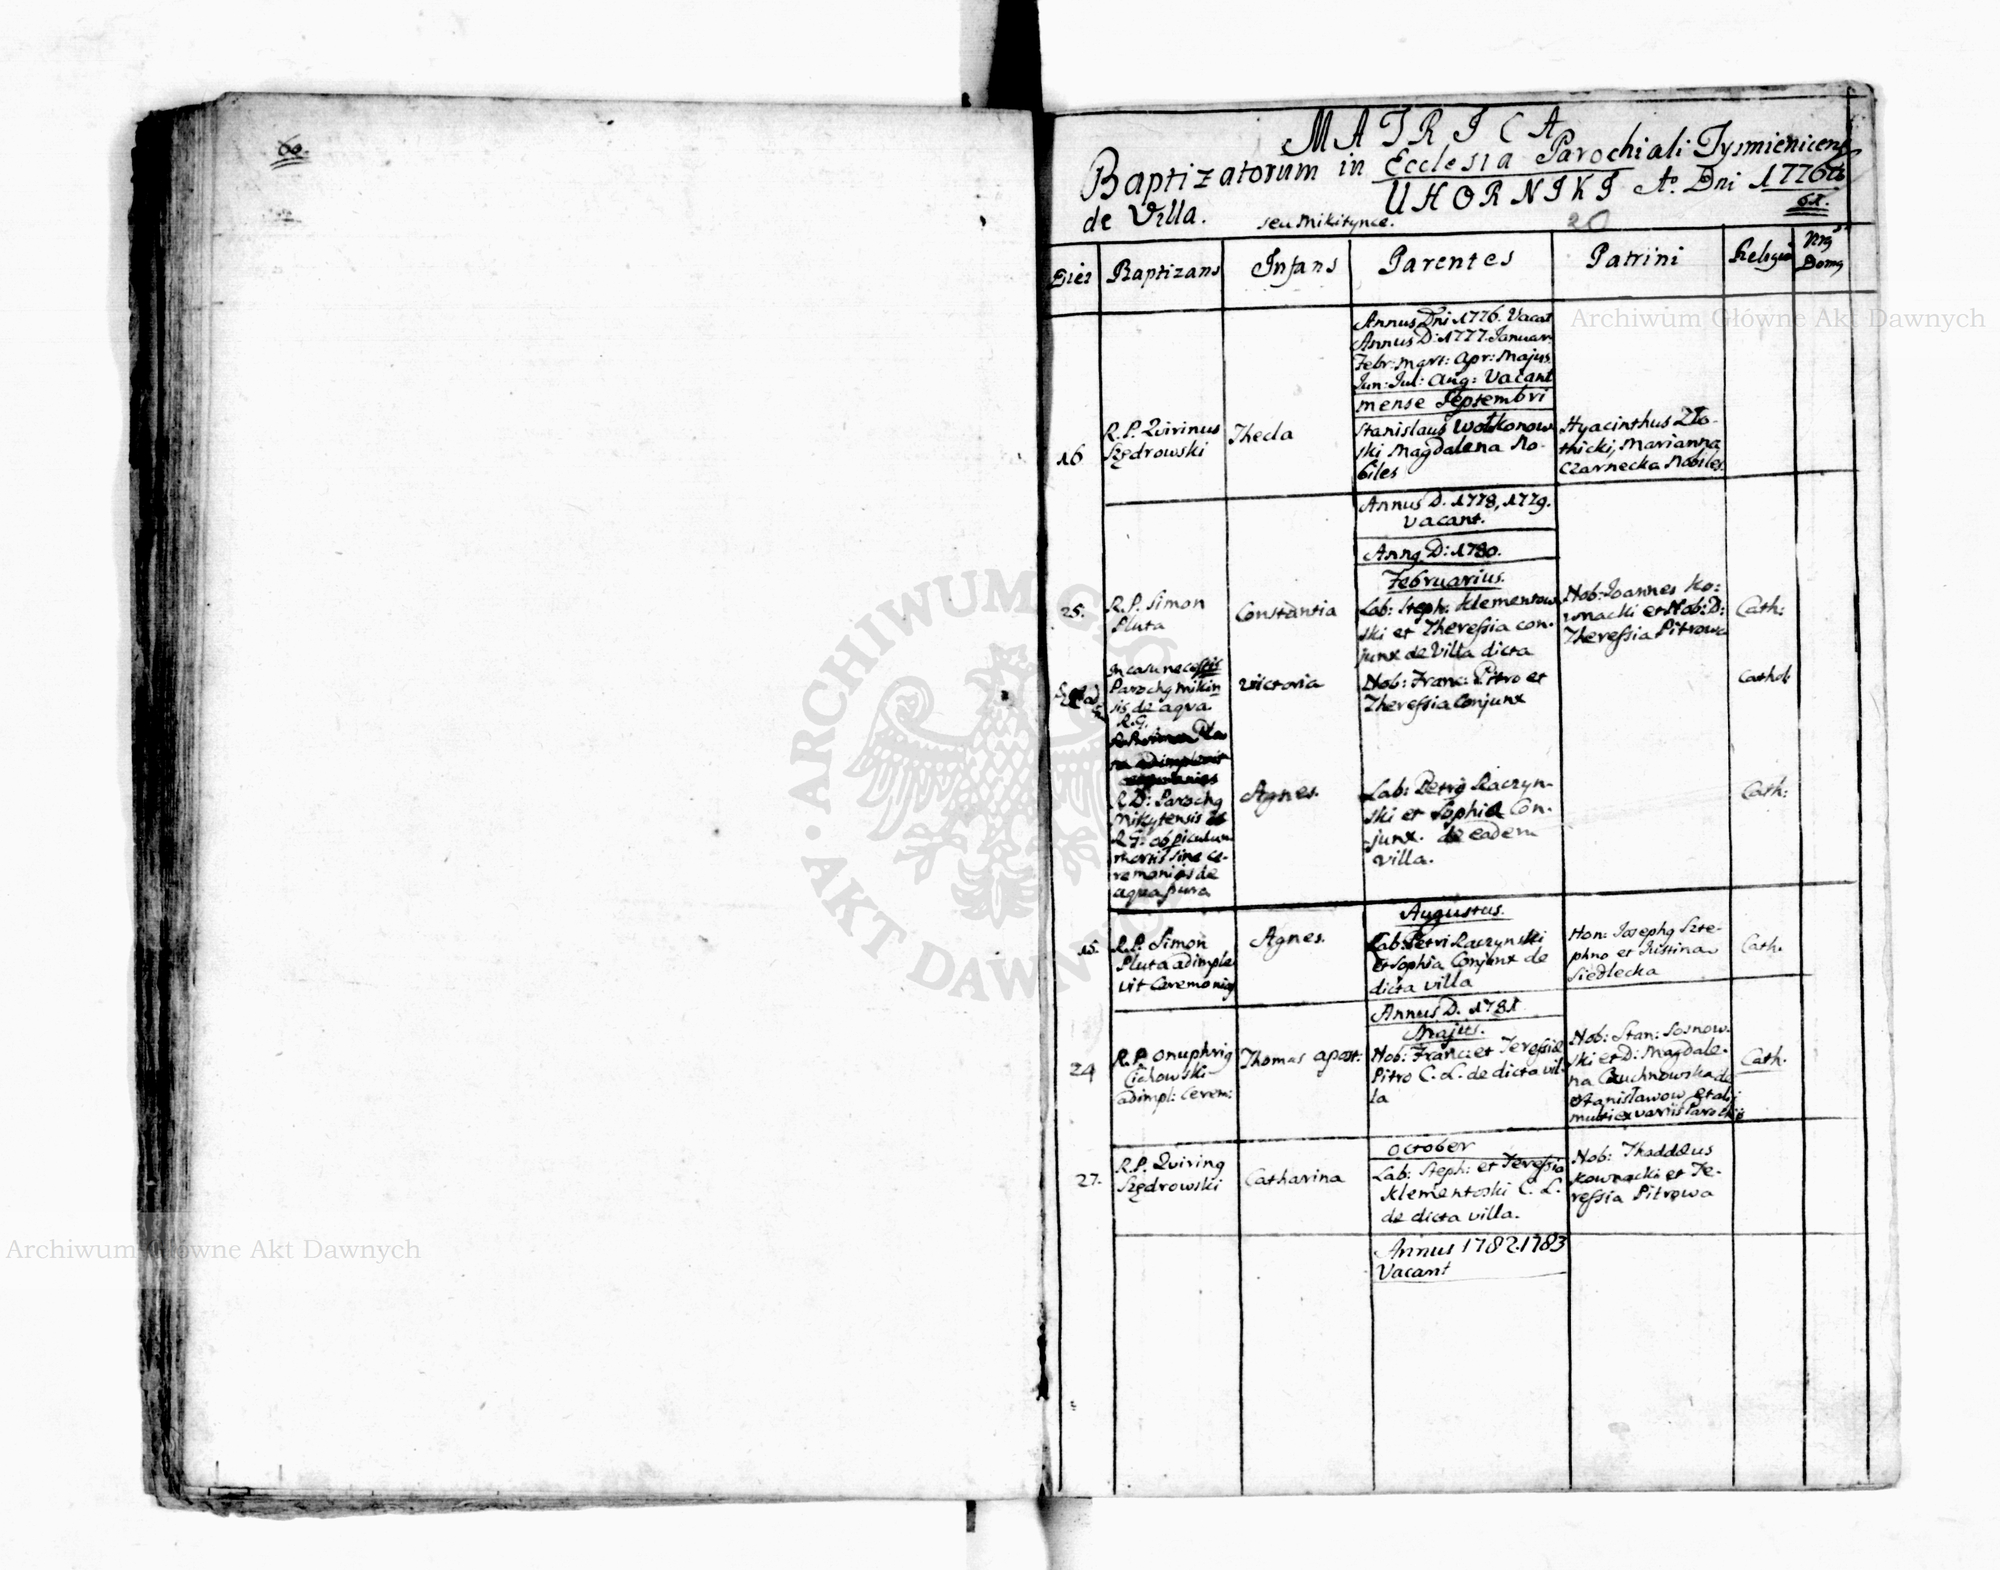 60.
MATRICA
Baptizatorum in Ecclesia Parochiali Tysmienicens
de Villa. UHORNIKI Ao. Dni 1776to
seu Mikitynce. 20 61.
Dies Baptizans Infans Parentes Patrini Religio Nrg Domg
Annus Dni 1776. Vacat
Annus D: 1777. Januar
Febr: Mart: Apr: Majus
Jun: Jul: Aug: Vacant
mense Septembri
16
R. P. Quirinus
Szędrowski
Thecla
Stanislaus Wołkonow
ski Magdalena No-
biles
Hyacinthus Zło-
tnicki, Marianna
Czarnecka Nobiles.
Annus D. 1778, 1779.
Vacant.
Anng D: 1780.
Februarius.
25.
R. P. Simon
Pluta
Constantia
Lab: Steph: Klementow
ski et Theressia con-
junx de Villa dicta
Nob: Joannes Ko:
wnacki et Nob: D:
Theressia Pitrowa
Cath:
In casu necessis
Parochg Mikin
sis de aqua
R. G.
Victoria
Nob: Franc: Pitro et
Theressia Conjunx
Cathol:
R D: Parochg
Mikytensis
R G: ob piculum
mortis sine ce-
remoniis de
aqua pura
Agnes.
Lab: Petrg Raczyn-
ski et Sophia Con-
junx. de eadem
villa.
Cath:
Augustus.
15.
R. P. Simon
Pluta adimple
vit Ceremonig
Agnes.
Lab: Petri Raczynski
et Sophia Conjunx de
dicta villa
Hon: Josephg Szte-
phno et Justina
Siedlecka
Cath.
Annus D. 1781
Majus.
24
R. P. Onuphrig
Cichowski
adimpl: Cerem:
Thomas apost:
Nob: Franc: et Teressiæ
Pitro C. L. de dicta vil-
la
Nob: Stan: Sosnow-
ski et D: Magdale-
na Czuchnowska de
Stanisławow et alii
multi ex variis Parochiis
Cath.
October
27.
R. P. Quiring
Szędrowski
Catharina
Lab: Steph: et Teressia
Klementoski C. L.
de dicta villa.
Nob: Thaddæus
Kownacki et Te-
ressia Pitrowa
Annus 1782. 1783
Vacant
Archiwum Główne Akt Dawnych
Archiwum Główne Akt Dawnych
ARCHIWUM GŁÓWNE AKT DAWNYCH